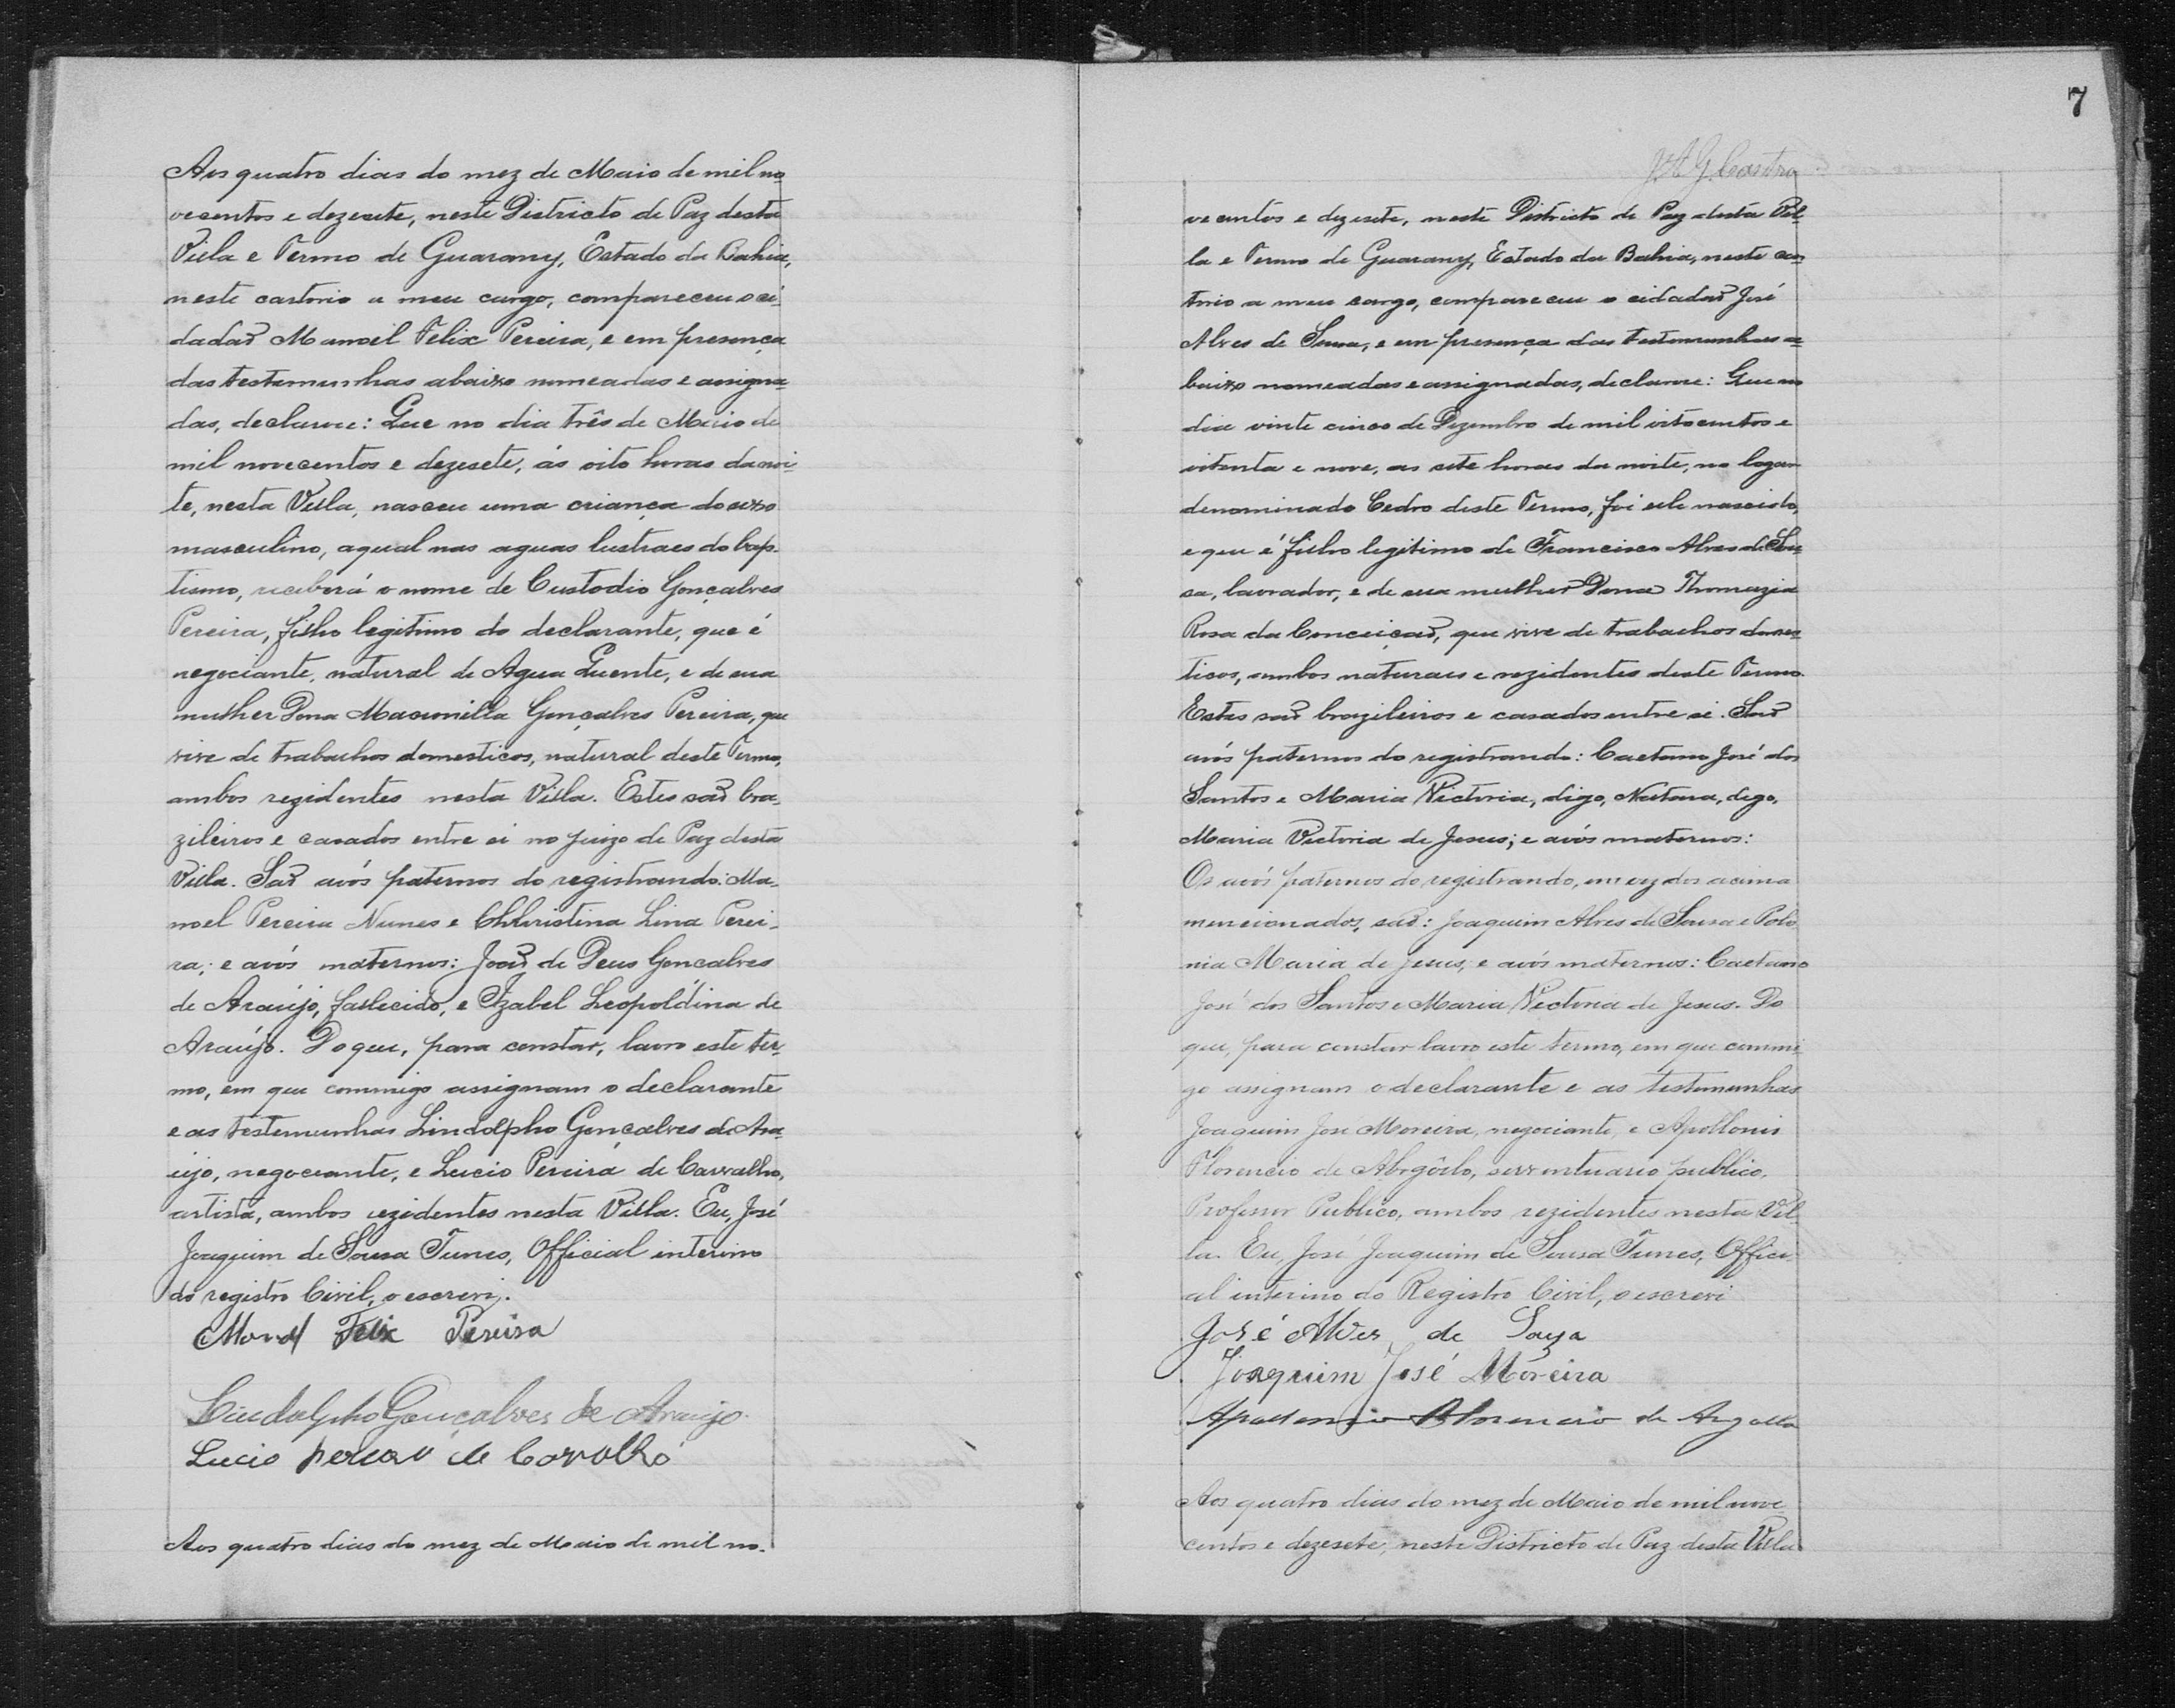 Aos quatro dias do mez de Maio de mil no-
vecentos e dezesete, neste Districto de Paz desta
Villa e Termo de Guarany, Estado da Bahia,
neste cartorio a meu cargo, compareceu o ci-
dadaõ Manoel Felix Pereira, e em presença
das testemunhas abaixo nomeadas e assigna-
das, declarou: Que no dia três de Maio de
mil novecentos e dezesete, ás oito horas da noi-
te, nesta Villa, nasceu uma criança do sexo
masculino, a qual nas aguas lustraes do bap-
tismo, receberá o nome de Custodio Gonçalves
Pereira, filho legitimo do declarante, que é
negociante, natural de Agua Quente, e de sua
mulher Dona Gonçalves Pereira, que
vive de trabachos domesticos, natural deste Termo,
ambos rezidentes nesta Villa. Estes saõ bra-
zileiros e casados entre si no juizo de Paz desta
Villa. Saõ avós paternos do registrando: Ma-
noel Pereira Nunes e Chhristina Lina Perei-
ra; e avós maternos: Joaõ de Deus Goncalves
de Araújo, fallecido, e Izabel Leopoldina de
Araújo. Do que, para constar, lavro este ter-
mo, em que commigo assignam o declarante
e as testemunhas Lindolpho Gonçalves de Ara-
újo, negociante, e Lucio Pereira de Carvalho,
artista, ambos rezidentes nesta Villa. Eu, José
Joaquim de Sousa Tunes, Official interino
do registro Civil, o escrevi.
Manoel Felix Pereira
Lindolpho Gonçalves de Araujo.
Lucio pereira de Carvalho
Aos quatro dias do mez de Maio de mil no-
7
J. A. G. Castro
vecentos e dezesete, neste Districto de Paz desta Vil-
la e Termo de Guarany, Estado da Bahia, neste car-
torio a meu cargo, compareceu o cidadaõ José
Alves de Sousa, e em presença das testemunhas a-
baixo nomeadas e assignadas, declarou: Que no
dia vinte cinco de Dezembro de mil oitocentos e
oitenta e nove, as sete horas da noite, no logar
denominado Cedro deste Termo, foi elle nascido,
e que é filho legitimo de Francisco Alves de Sou-
sa, lavrador, e de sua mulher Dona Thomazia
Rosa da Conceiçaõ, que vive de trabachos domes-
ticos, ambos naturaes e rezidentes deste Termo.
Estes saõ brazileiros e casados entre si. Saõ
avós paternos do registrando: Caetano José dos
Santos e Maria Victoria, digo, digo,
Maria Victoria de Jesus; e avós maternos:
Os avós paternos do registrando, em vez dos acima
mencionados, saõ: Joaquim Alves de Sousa e Polo-
nia Maria de Jesus; e avós maternos: Caetano
José dos Santos e Maria Victoria de Jesus. Do
que, para constar lavro este termo, em que commi-
go assignam o declarante e as testemunhas
Joaquim José Moreira, negociante, e Apollonio
Florencio de serventuario publico,
Professor Publico, ambos rezidentes nesta Vil-
la. Eu, José Joaquim de Sousa Tunes, Offici-
al interino do Registro Civil, o escrevi
José Alves de Souza
Joaquim José Moreira
Florencio de Argollo
Aos quatro dias do mez de Maio de mil nove
centos e dezesete, neste Districto de Paz desta Villa